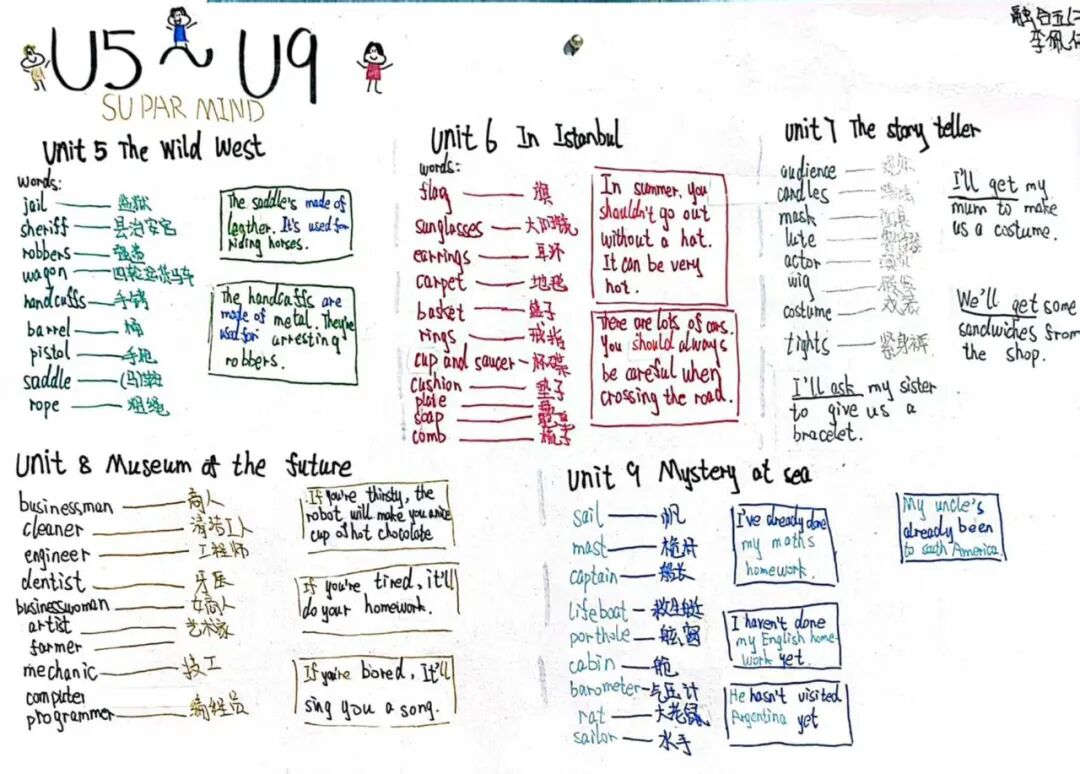 U5~U9
SUPAR MIND
Unit 5 The Wild West
words:
jail — 监狱
sheriff — 县治安官
robbers — 强盗
wagon — 四轮运货马车
handcuffs — 手铐
barrel — 桶
pistol — 手枪
saddle — (马)鞍
rope — 粗绳
The saddle's made of
leather. It's used for
riding horses.
The handcuffs are
made of metal. They're
used for arresting
robbers.
Unit 6 In Istanbul
words:
flag — 旗
sunglasses — 太阳镜
earrings — 耳环
carpet — 地毯
basket — 篮子
rings — 戒指
cup and saucer — 杯碟
cushion — 垫子
plate
soap
comb — 梳子
In summer, you
shouldn't go out
without a hat.
It can be very
hot.
There are lots of cars.
You should always
be careful when
crossing the road.
Unit 7 The story teller
audience — 观众
candles
mask — 面具
lute
actor — 演员
wig — 假发
costume — 戏服
tights — 紧身裤
I'll ask my sister
to give us a
bracelet.
I'll get my
mum to make
us a costume.
We'll get some
sandwiches from
the shop.
Unit 8 Museum of the future
businessman — 商人
cleaner — 清洁工人
engineer — 工程师
dentist — 牙医
businesswoman — 女商人
artist — 艺术家
farmer —
mechanic — 技工
computer
programmer — 编程员
If you're thirsty, the
robot will make you a nice
cup of hot chocolate
If you're tired, it'll
do your homework.
If you're bored, It'll
sing you a song.
Unit 9 Mystery at sea
sail — 帆
mast — 桅杆
captain — 船长
lifeboat — 救生艇
porthole — 舷窗
cabin — 舱
barometer — 气压计
rat — 大老鼠
sailor — 水手
I've already done
my maths
homework.
I haven't done
my English home-
work yet.
He hasn't visited
Argentina yet
My uncle's
already been
to south America.